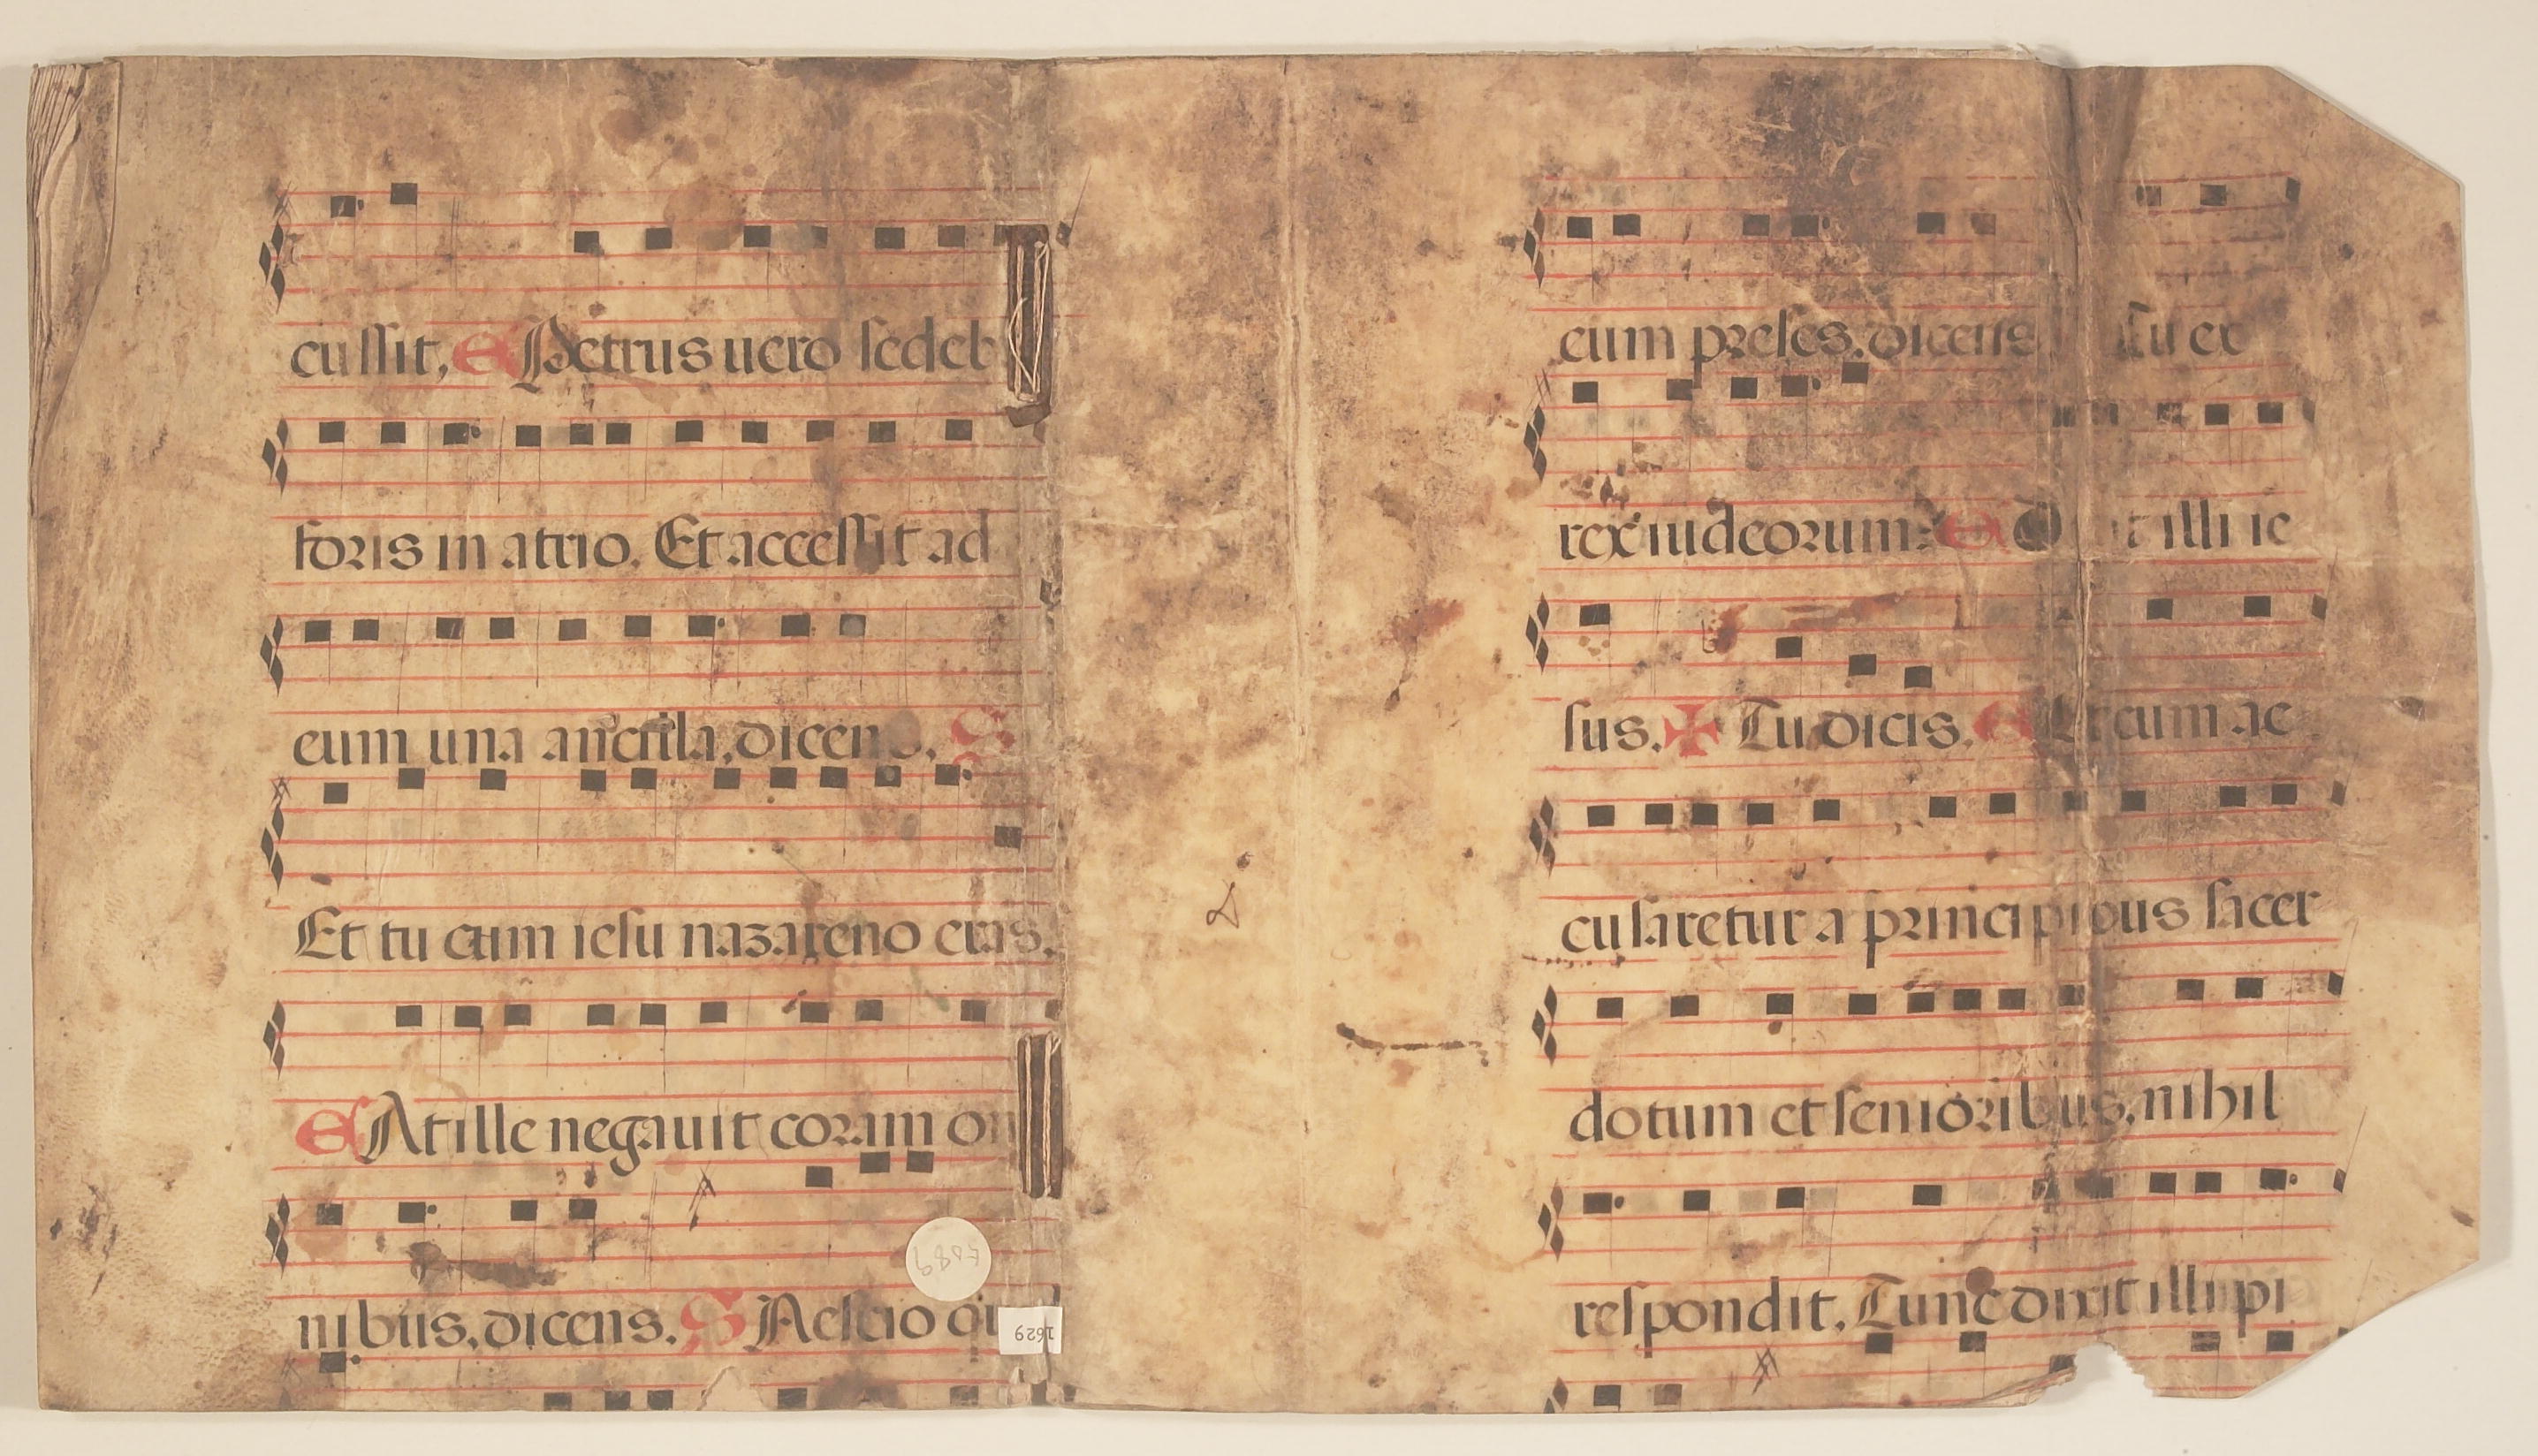 cussit, C Petrus uero sedeb
foris in atrio. Et accessit ad
eum una ancilla, dicens. S
Et tu cum iesu nazareno eras.
C At ille negauit coram om
nibus, dicens. S Nescio qu
eum preses, dicens. Tu es
rex iudeorum: C illi ie
sus. ✠ Tu dicis. C Et cum ac
cusaretur a principibus sacer
dotum et senioribus, nihil
respondit. Tunc dixit illi pi
5089
1629